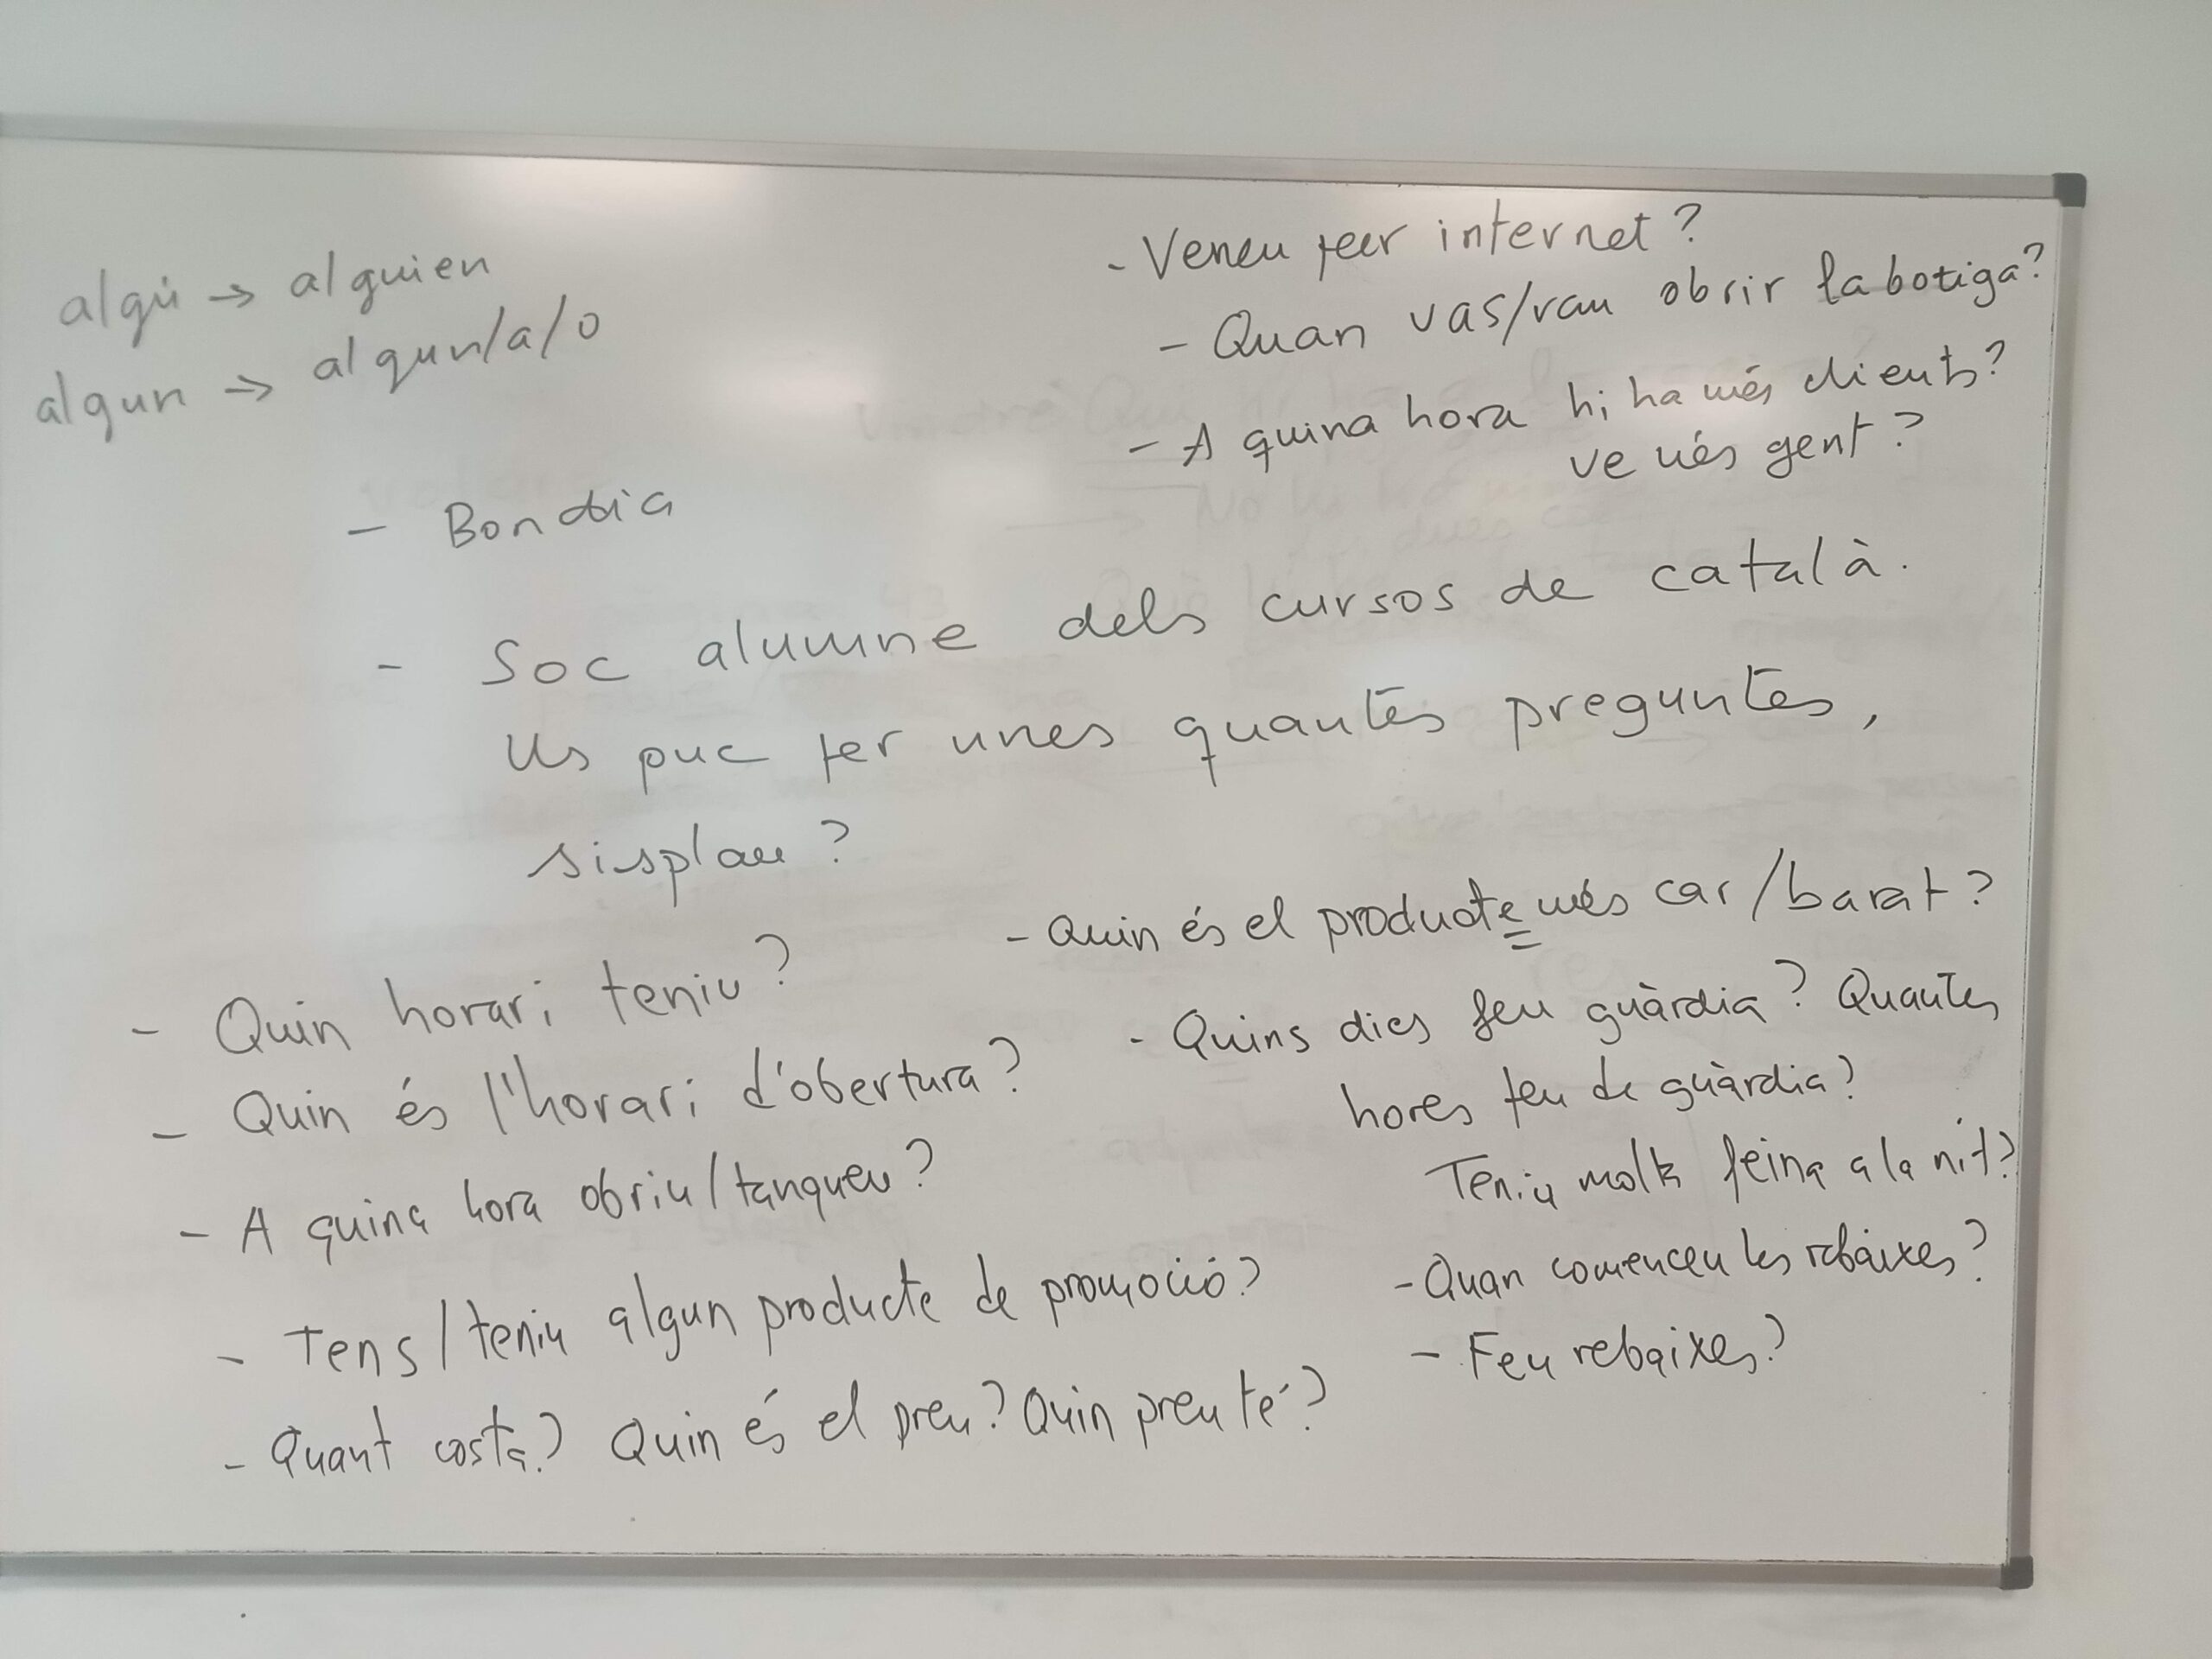 algú → alguien
algun → algun/a/o
- Veneu per internet?
- Quan vas/vau obrir la botiga?
- A quina hora hi ha més clients?
ve més gent?
- Bon dia
- Soc alumne dels cursos de català.
Us puc fer unes quantes preguntes,
sisplau?
- Quin horari teniu?
- Quin és l'horari d'obertura?
- A quina hora obriu/tanqueu?
- Tens/teniu algun producte de promoció?
- Quant costa? Quin és el preu? Quin preu té?
- Quin és el producte més car/barat?
- Quins dies feu guàrdia? Quantes
hores feu de guàrdia?
Teniu molta feina a la nit?
- Quan comenceu les rebaixes?
- Feu rebaixes?